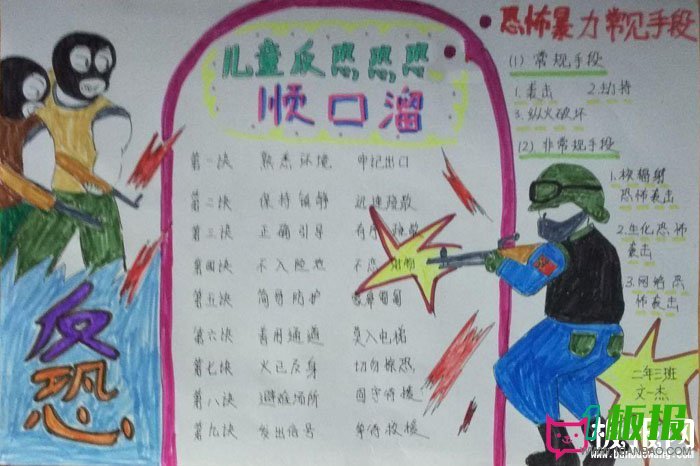 反恐
儿童反恐
顺口溜
第一诀 熟悉环境 牢记出口
第二诀 保持镇静 迅速疏散
第三诀 正确引导 有序疏散
第四诀 不入险地 不恋财物
第五诀 简易防护
第六诀 善用通道 莫入电梯
第七诀 火已及身 切勿惊恐
第八诀 避难场所 固守待援
第九诀 发出信号 等待救援
恐怖暴力常见手段
(1) 常规手段
1.袭击 2.劫持
3.纵火破坏
(2) 非常规手段
1.核辐射
恐怖袭击
2.生化恐怖
袭击
3.网络恐
怖袭击
二年三班
文一杰
板报